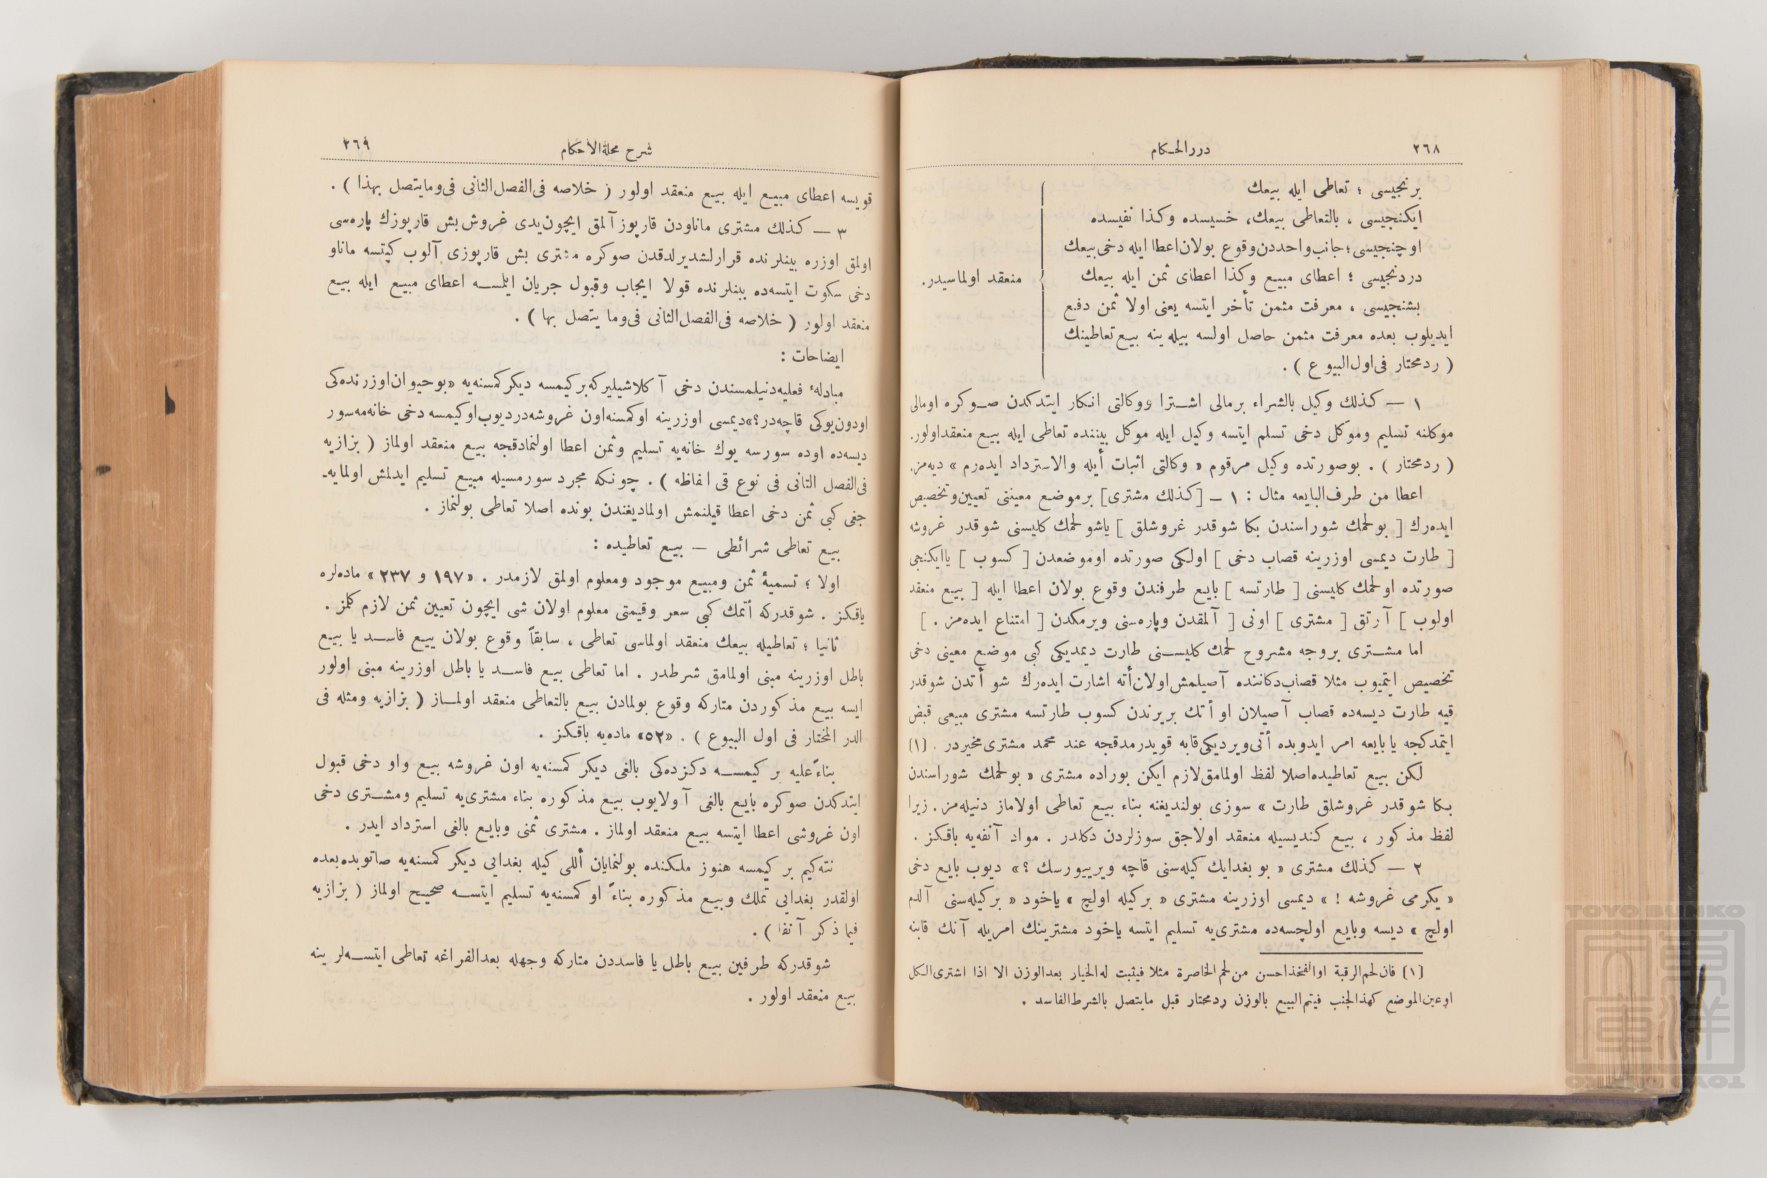 ٢٦٨
دررالحكام
برنجيسى ؛ تعاطى ايله بيعك
ايكنجيسى ، بالتعاطى بيعك، خسيسده وكذا نفيسده
اوچنجيسى؛ جانب واحددن وقوع بولان اعطا ايله دخى بيعك
دردنجيسى ؛ اعطاى مبيع وكذا اعطاى ثمن ايله بيعك
منعقد اولماسيدر.
بشنجيسى ، معرفت مثمن تأخر ايتسه يعنى اولا ثمن دفع
ايديلوب بعده معرفت مثمن حاصل اولسه بيله ينه بيع تعاطينك
( ردمحتار فى اول البيوع ) .
١ — كذلك وكيل بالشراء برمالى اشترا ووكالتى انكار ايتدكدن صوكره اومالى
موكلنه تسليم وموكل دخى تسلم ايتسه وكيل ايله موكل بيننده تعاطى ايله بيع منعقد اولور.
( ردمحتار ) . بوصورتده وكيل مرقوم « وكالتى اثبات أيله والاسترداد ايدەرم » ديەمز.
اعطا من طرف البايعه مثال : ١ — [كذلك مشترى] برموضع معينى تعيين وتخصيص
ايدەرك [ بولحمك شوراسندن بكا شوقدر غروشلق ] ياشولحمك كليسنى شوقدر غروشه
[ طارت ديمسى اوزرينه قصاب دخى ] اولكى صورتده اوموضعدن [ كسوب ] ياايكنجى
صورتده اولحمك كليسنى [ طارتسه ] بايع طرفندن وقوع بولان اعطا ايله [ بيع منعقد
اولوب ] آرتق [ مشترى ] اونى [ آلمقدن وپارەسنى ويرمكدن [ امتناع ايدەمز . ]
اما مشترى بروجه مشروح لحمك كليسنى طارت ديمديكى كبى موضع معينى دخى
تخصيص ايتميوب مثلا قصاب دكاننده آصيلمش اولان أته اشارت ايدەرك شو أتدن شوقدر
قيه طارت ديسەده قصاب آصيلان او أتك بريرندن كسوب طارتسه مشترى مبيعى قبض
ايتمدكجه يابايعه امر ايدوبده أتى ويرديكى قابه قويدرمدقجه عند محمد مشترى مخيردر . (١)
لكن بيع تعاطيده اصلا لفظ اولمامق لازم ايكن بوراده مشترى « بولحمك شوراسندن
بكا شوقدر غروشلق طارت » سوزى بولنديغنه بناء بيع تعاطى اولاماز دنيلەمز . زيرا
لفظ مذكور ، بيع كنديسيله منعقد اولاجق سوزلردن دكلدر . مواد آنفەيه باقكز .
٢ — كذلك مشترى « بوبغدايك كيلەسنى قاچه ويرييورسك ؟ » ديوب بايع دخى
« يكرمى غروشه ! » ديمسى اوزرينه مشترى « بركيله اولچ » ياخود « بركيلەسنى آلدم
اولچ » ديسه وبايع اولچسەده مشترىيه تسليم ايتسه ياخود مشترينك امريله آنك قابنه
(١) فان لحم الرقبة اوالفخذ احسن من لحم الخاصرة مثلا فيثبت له الخيار بعدالوزن الا اذا اشترى الكل
اوعين الموضع كهذا الجنب فيتم البيع بالوزن ردمحتار قبل مايتصل بالشرط الفاسد .
شرح مجلة الأحكام
٢٦٩
قويسه اعطاى مبيع ايله بيع منعقد اولور ( خلاصه فى الفصل الثانى فى ومايتصل بهذا ) .
٣ — كذلك مشترى ماناودن قارپوز آلمق ايچون يدى غروش بش قارپوزك پارەسى
اولمق اوزره بينلرنده قرارلشديرلدقدن صوكره مشترى بش قارپوزى آلوب كيتسه ماناو
دخى سكوت ايتسەده بينلرنده قولا ايجاب وقبول جريان ايتمسه اعطاى مبيع ايله بيع
منعقد اولور ( خلاصه فى الفصل الثانى فى وما يتصل بها ) .
ايضاحات :
مبادلهٔ فعليه دنيلمسندن دخى آكلاشيليركه بركيمسه ديكركمسنەيه «بوحيوان اوزرندەكى
اودون يوكى قاچەدر؟» ديمسى اوزرينه اوكمسنه اون غروشەدر ديوب اوكيمسه دخى خانەمه سور
ديسەده اوده سورسه يوك خانەيه تسليم وثمن اعطا اولنمادقجه بيع منعقد اولماز ( بزازيه
فى الفصل الثانى فى نوع فى الفاظه ) . چونكه مجرد سورمسيله مبيع تسليم ايدلمش اولمايە-
جغى كبى ثمن دخى اعطا قيلنمش اولماديغندن بونده اصلا تعاطى بولنماز .
بيع تعاطى شرائطى — بيع تعاطيده :
اولا ؛ تسميهٔ ثمن ومبيع موجود ومعلوم اولمق لازمدر . «١٩٧ و ٢٣٧» مادەلره
باقكز . شوقدركه أتمك كبى سعر وقيمتى معلوم اولان شى ايچون تعيين ثمن لازم كلمز .
ثانيا ؛ تعاطيله بيعك منعقد اولماسى تعاطى ، سابقاً وقوع بولان بيع فاسد يا بيع
باطل اوزرينه مبنى اولمامق شرطدر . اما تعاطى بيع فاسد يا باطل اوزرينه مبنى اولور
ايسه بيع مذكوردن متاركه وقوع بولمادن بيع بالتعاطى منعقد اولماز ( بزازيه ومثله فى
الدر المختار فى اول البيوع ) . «٥٢» مادەيه باقكز .
بناءً عليه بر كيمسه دكزدەكى بالغى ديكر كمسنەيه اون غروشه بيع واو دخى قبول
ايتدكدن صوكره بايع بالغى آولايوب بيع مذكوره بناء مشترىيه تسليم ومشترى دخى
اون غروشى اعطا ايتسه بيع منعقد اولماز . مشترى ثمنى وبايع بالغى استرداد ايدر .
نتەكيم بر كيمسه هنوز ملكنده بولنمايان أللى كيله بغدايى ديكر كمسنەيه صاتوبده بعده
اولقدر بغدايى تملك وبيع مذكوره بناءً اوكمسنەيه تسليم ايتسه صحيح اولماز ( بزازيه
فيما ذكر آنفا ) .
شوقدركه طرفين بيع باطل يا فاسددن متاركه وجهله بعدالفراغه تعاطى ايتسەلر ينه
بيع منعقد اولور .
TOYO BUNKO